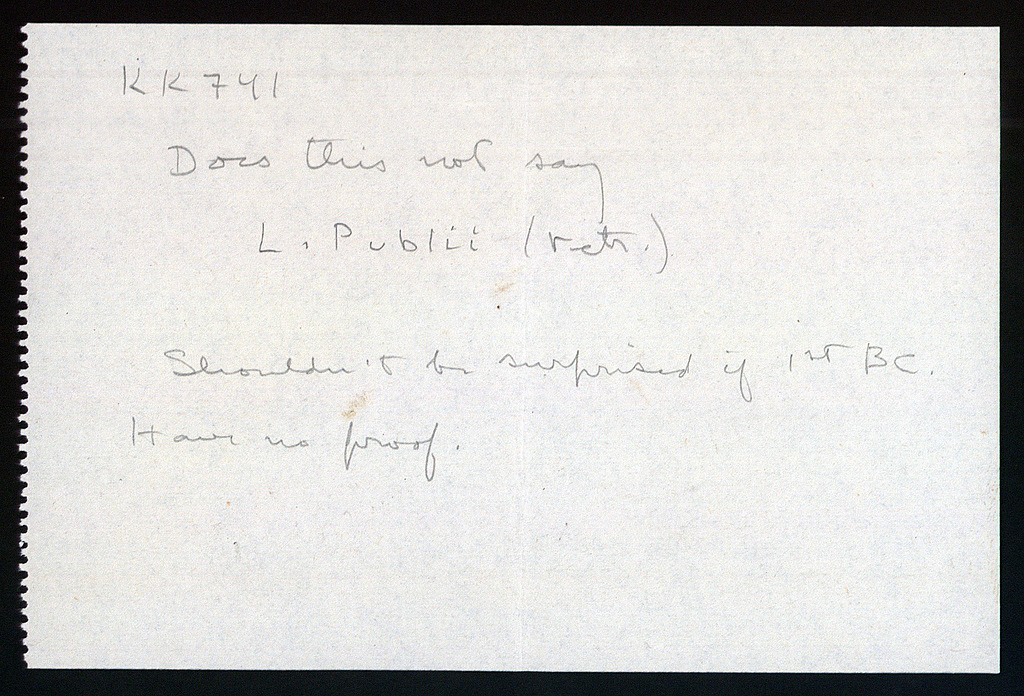 KK 741
Does this not say
L. Publii (retr.)
Shouldn't be surprised if 1st BC.
Have no proof.